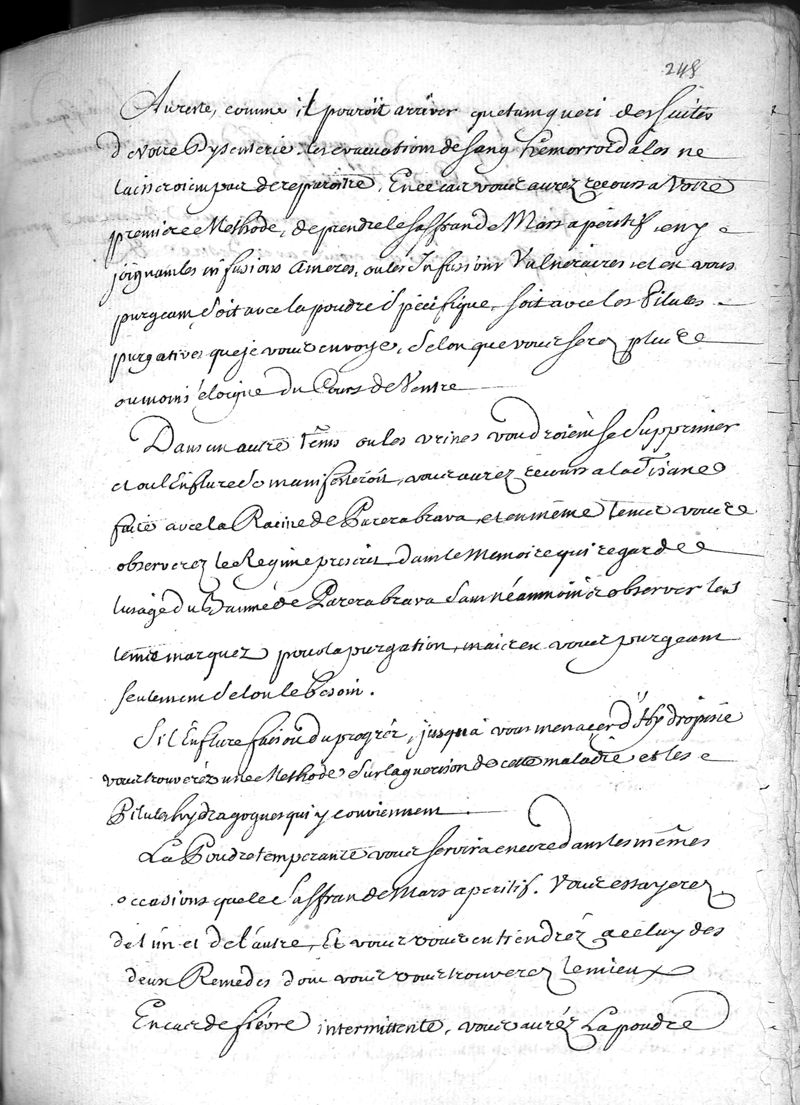 248
Au reste, comme il pouroit arriver qu'etant gueri des suites
de votre Dysenterie les evacuations de sang hemorroïdales ne
laisseroient pas de reparoitre, En ce cas vous aurez recours a Votre
premiere Methode, de prendre le saffran de Mars aperitif, en y
joignant les infusions Ameres, ou les Infusions Vulneraires et en vous
purgeant, soit avec la poudre specifique, soit avec les Pilules
purgatives que je vous envoye, selon que vous serez plus
ou moins éloigné du Cours de Ventre
Dans un autre têms ou les urines voudroient se supprimer
et ou l'Enflure se manifesteroit, vous aurez recours a la Tisane
faite avec la Racine de Parera brava, et en même temps vous
observerez le Regime prescrit dans le Memoire qui regarde
l'usage du Baume de Parera brava sans néanmoins observer les
tems marquez pour la purgation, mais en vous purgeant
seulement selon le besoin.
Si l'Enflure faisoit du progrez, jusqu'a vous menacer d'Hydropisie
vous trouverez une Methode sur la guerison de cette maladie et les
Pilules hydragogues qui y conviennent
La Poudre temperante vous servira encore dans les mêmes
occasions que le Saffran de Mars aperitif. Vous essayerez
de l'un et de l'autre, Et vous vous en tiendréz a celuy des
deux Remedes dont vous vous trouverez le mieux
En cas de fiévre intermittente, vous auréz La poudre